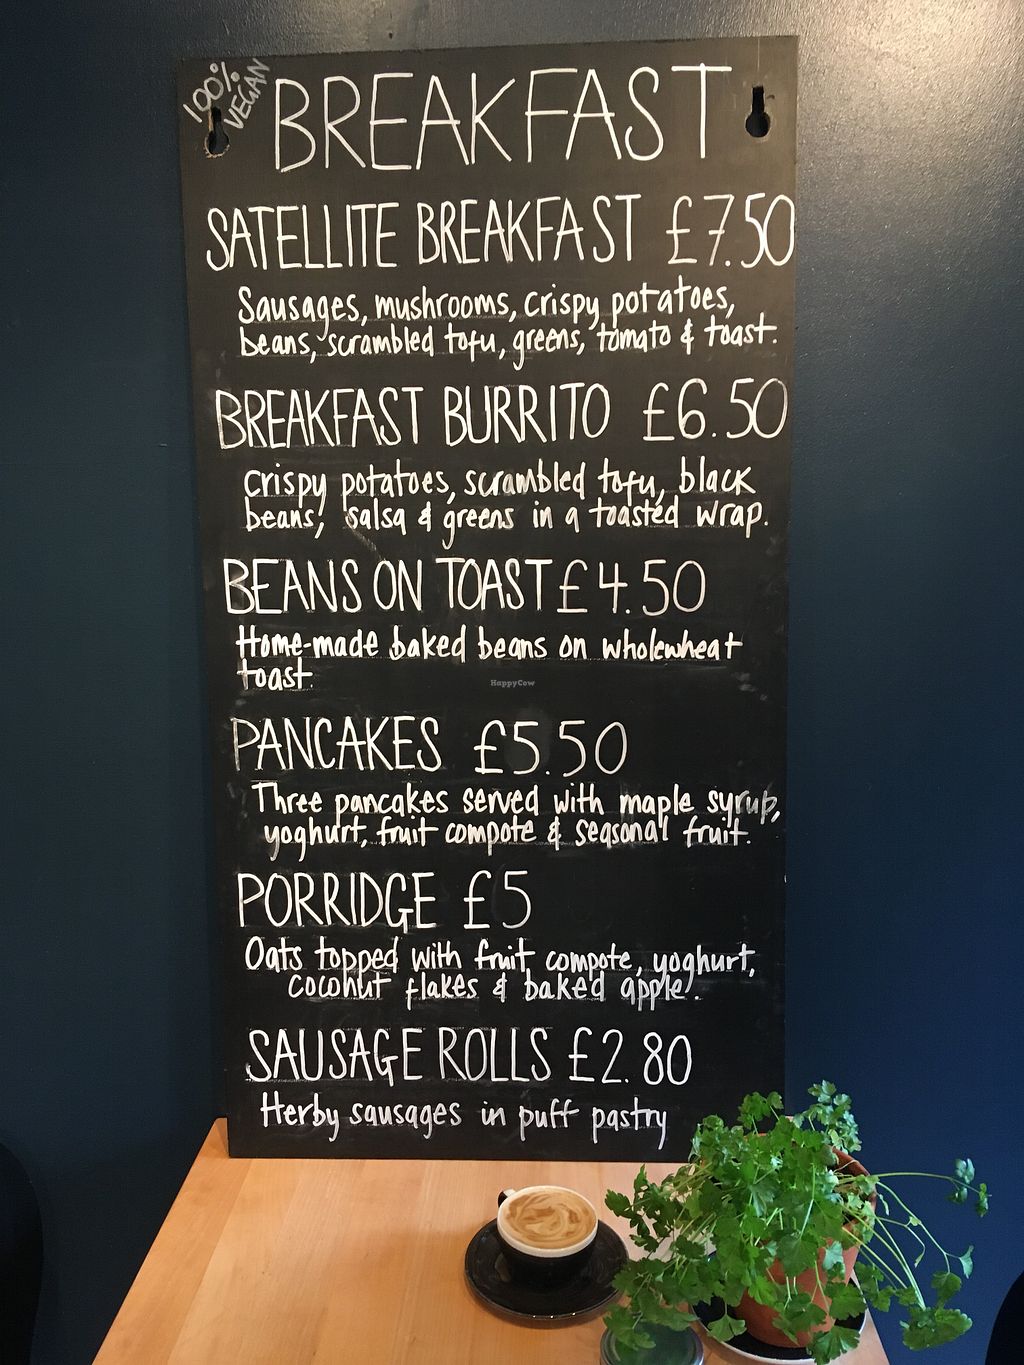 100% VEGAN
BREAKFAST
SATELLITE BREAKFAST £7.50
Sausages, mushrooms, crispy potatoes,
beans, scrambled tofu, greens, tomato & toast.
BREAKFAST BURRITO £6.50
crispy potatoes, scrambled tofu, black
beans, salsa & greens in a toasted wrap.
BEANS ON TOAST £4.50
Home-made baked beans on wholewheat
toast.
HappyCow
PANCAKES £5.50
Three pancakes served with maple syrup,
yoghurt, fruit compote & seasonal fruit.
PORRIDGE £5
Oats topped with fruit compote, yoghurt,
coconut flakes & baked apple.
SAUSAGE ROLLS £2.80
Herby sausages in puff pastry